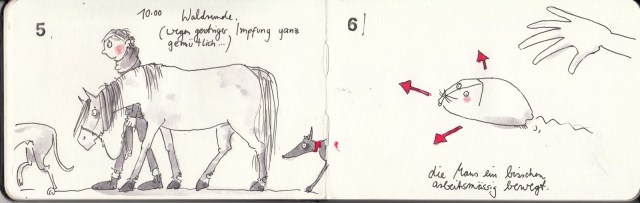 5
10:00 Waldrunde.
(wegen gestriger Impfung ganz
gemütlich...)
6
die Maus ein bisschen
arbeitsmässig bewegt.